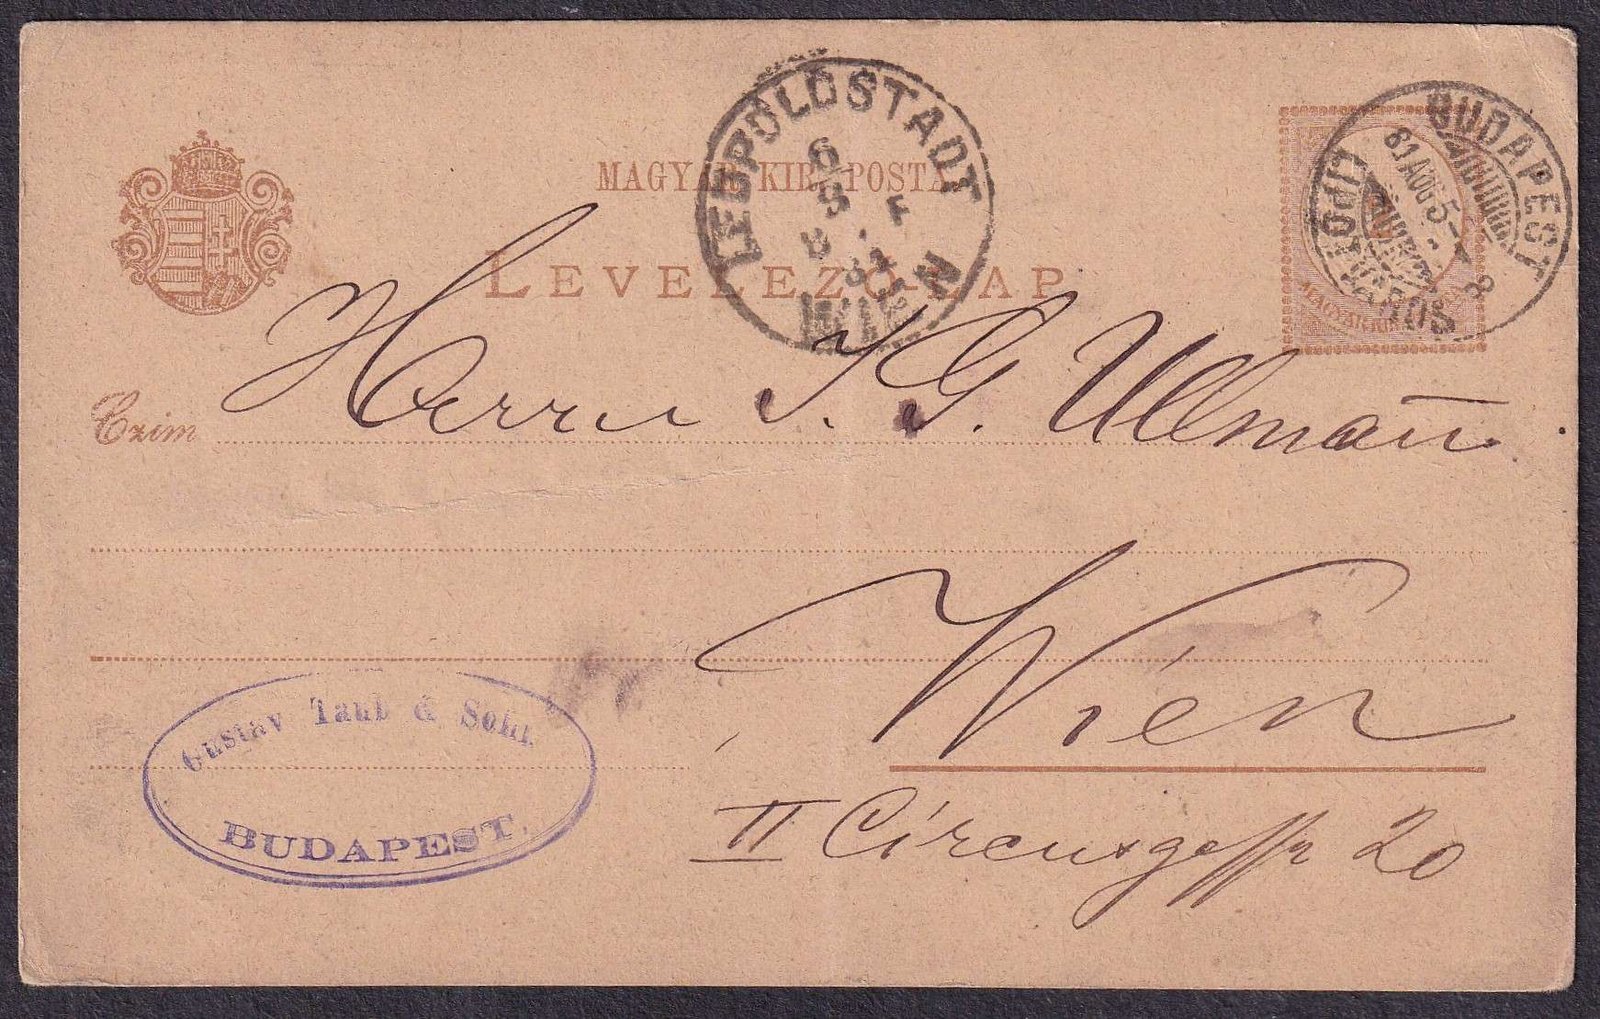 LEOPOLDSTADT
6
8
F
8
81
WIEN
BUDAPEST
81 AUG 5
8
LIPÓTVÁROS
MAGYAR KIR. POSTA
LEVELEZŐ-LAP
MAGYAR KIR.
Czim
Herrn J. G. Ullmañ.
Wien
II Circusgasse 20
Gustav Taub & Sohn
BUDAPEST.